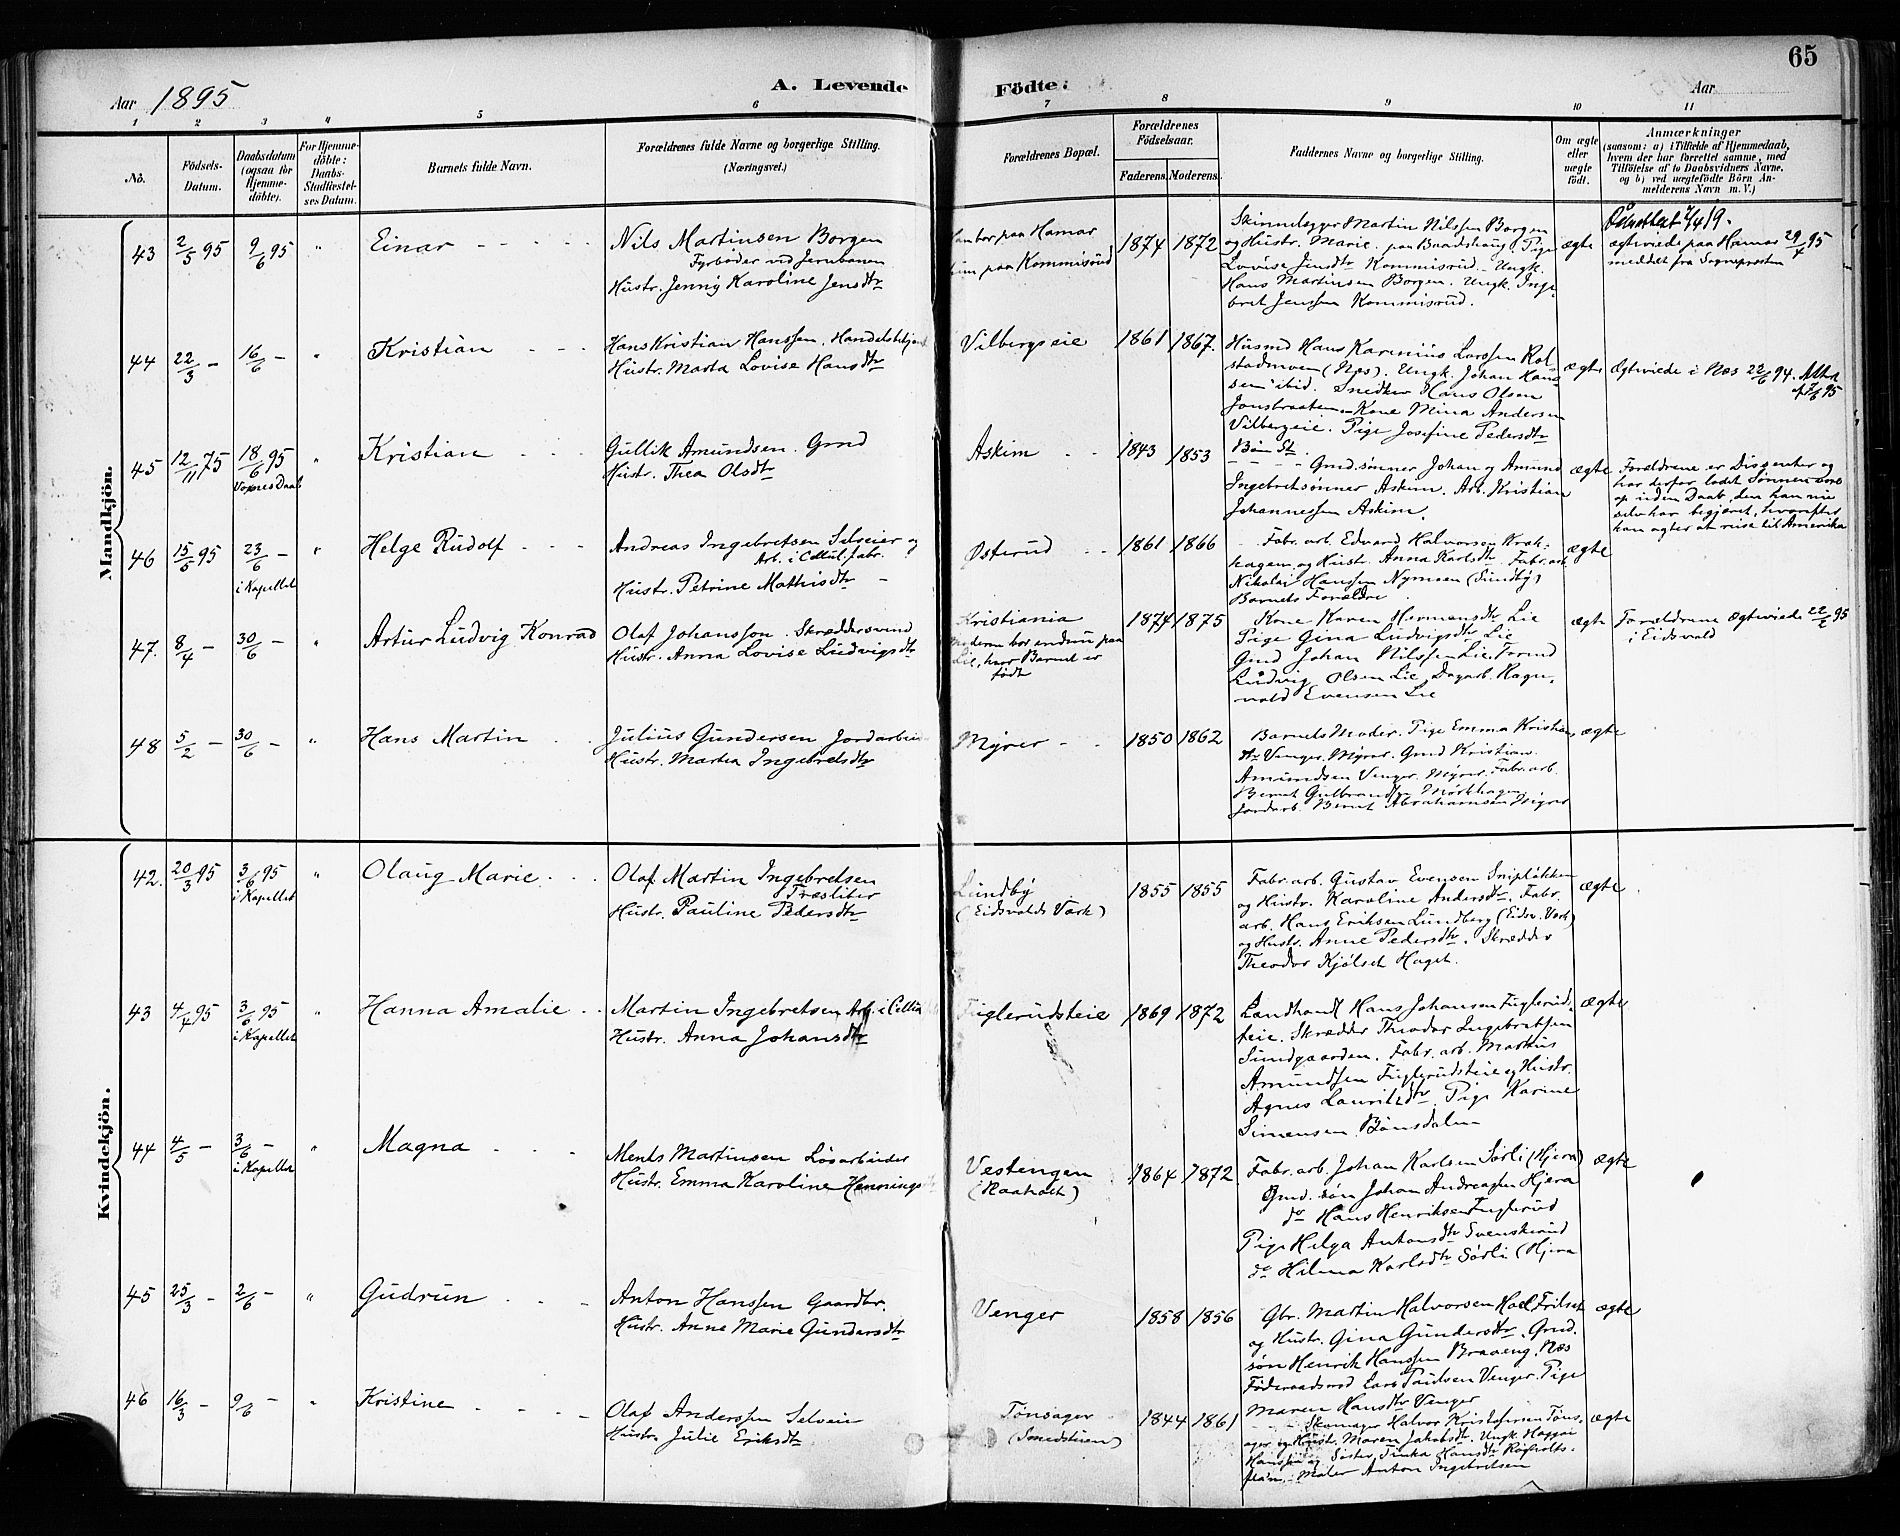 65
Aar 1895
A. Levende Födte.
Aar
1 2 3 4 5 6 7 8 9 10 11
No.
Födsels-Datum.
Daabsdatum (ogsaa for Hjemmedöbte).
For Hjemmedöbte: Daabs-Stadfæstelses Datum.
Barnets fulde Navn.
Forældrenes fulde Navne og borgerlige Stilling. (Næringsvei.)
Forældrenes Bopæl.
Forældrenes Födselsaar.
Faderens. Moderens.
Faddernes Navne og borgerlige Stilling.
Om ægte eller uægte födt.
Anmærkninger
(saasom: a) i Tilfælde af Hjemmedaab,
hvem der har forrettet samme, med
Tilföielse af to Daabsvidners Navne,
og b) ved uægtefödte Börn Anmelderens Navn m. V.)
Mandkjön.
43 2/5 95 9/6 95 " Einar
Nils Martinsen Borgen
Fyrböder ved Jernbanen
Hustr. Jenny Karoline Jensdtr
Han bor paa Hamar
hun paa Kommisrud
1874 1872
Skinnelægger Martin Nilssen Borgen
og Hustr. Marie. paa Baadshaug. Pige
Lovise Jensdtr Kommisrud. Ungk.
Hans Martinsen Borgen. Ungk. Inge-
bret Jenssen Kommisrud.
ægte
ægteviede paa Hamar 29/4 95
meddelt fra Sogneprosten
44 22/3 – 16/6 – " Kristian
Hans Kristian Hanssen. Handelsbetjent
Hustr. Marta Lovise Hansdtr
Vilbergseie
1861 1867.
Husmd Hans Karenius Larssen Rol-
stadmoen (Næs). Ungk. Johan Han-
sen ibid. Snedker Hans Olsen
Jonsbraaten. Kone Mina Andersen
Vilbergeie. Pige Josefine Pedersdtr
ægte
Ægteviede i Næs 22/6 94. Attest
af 7/6 95
45 12/11 75 18/6 95 " Kristian
Voxnes Daab
Gullik Amundsen. Grmd
Hustr. Thea Olsdtr
Askim
1843 1853
Grmd.sönner Johan og Amund
Ingebretsönner Askim. Arb. Kristian
Johannessen Askim.
ægte
Forældrene er Dissenter og
har derfor ladet Sönnen voxe
op uden Daab, den han nu
selv har begjæret, hvorefter
han agter at reise til Amerika
46 15/5 95 23/6 – " Helge Rudolf
i Kapellet
Andreas Ingebretsen Selveier og
Arb. i Cellul.fabr.
Hustr. Petrine Mathisdtr
Österud
1861 1866
Fabr. arb. Edvard Halvorsen Krak-
hagen og Hustr. Anna Karlsdtr. Fabr. arb.
Nikolai Hanssen Nymoen (Sundby)
Barnets Forældre
ægte
47. 8/4 – 30/6 – " Artur Ludvig Konrad
Olaf Johansson. Skræddersvend
Hustr. Anna Lovise Ludvigsdtr
Kristiania
Moderen bor endnu paa
Lie, hvor Barnet er
födt
1874 1875
Kone Karen Hermansdtr Lie
Pige Gina Ludvigsdtr Lie
Grmd Johan Nilssen Lie.
Ludvig Olsen Lie. Dagarb. Ragn-
vald Evensen Lie
ægte
Forældrene Ægteviede 22/2 95
i Eidsvold
48 5/2 – 30/6 – " Hans Martin
Julius Gundersen Jordarbeider
Hustr. Martea Ingebretsdtr
Myrer
1850 1862
Barnets Moder. Pige Emma Kristians-
dtr Venger. Myrer. Grmd Kristian
Amundsen Venger. Myrer. Fabr. arb.
Bernt Gulbrandsen Mörkhagen
Jordarb. Bernt Abrahamsen Myrer
ægte
Kvindekjön.
42. 20/3 95 3/6 95 " Olaug Marie
i Kapellet
Olaf Martin Ingebretsen
Træsliber
Hustr. Pauline Pedersdtr
Lundby
(Eidsvolds Værk)
1855 1855
Fabr. arb. Gustav Evensen Sniplökken
og Hustr. Karoline Andersdtr. Fabr.
arb. Hans Eriksen Lundberg (Eidsv. Værk)
og Hustr. Anne Pedersdtr. Skrædder
Theodor Kjölset Haget.
ægte
43 4/4 95 3/6 95 " Hanna Amalie
i Kapellet
Martin Ingebretsen Arb. i Cellu
Hustr. Anna Johansdtr
Fuglerudseie
1869 1872
Landhandl Hans Johansen Fuglerud-
eie. Skrædder Theodor Ingebretsen
Sundgaarden. Fabr. arb. Markus
Amundsen Fuglerudseie og Hustr.
Agnes Lauritzdtr. Pige Karine
Simensen Bönsdalen
ægte
44 4/5 – 3/6 – " Magna
i Kapellet
Ments Martinsen Lösarbeider
Hustr. Emma Karoline Hennings
Vestengen
(Raaholt)
1864 1872
Fabr. arb. Johan Karlsen Sörli (Hjera)
Grmd. sön Johan Andreassen Hjera
do Hans Henriksen Fuglerud
Pige Helga Antonsdtr Svenskerud
do Hilma Karlsdtr Sörli (Hjera
ægte
45 25/3 – 2/6 – " Gudrun
Anton Hanssen Gaardbr.
Hustr. Anne Marie Gundersdtr
Venger
1858 1856
Gbr. Martin Halvorsen Hoel Frilset
og Hustr. Gina Gundersdtr. Grmd.
sön Henrik Hanssen Braaeng. Næs
Föderaadsmd Lars Paulsen Venger. Pige
Maren Hansdtr Venger
ægte
46 16/3 – 9/6 – " Kristine
Olaf Anderssen Selveier
Hustr. Julie Eriksdtr
Tönsager
(Smedstuen)
1844 1861
Skomager Halvor Kristofersen Töns-
ager og Hustr. Maren Jakobsdtr. Ungk. Haagen
Hanssen og Söster Tinka Hansdtr
Maler Anton Ingebretsen
ægte